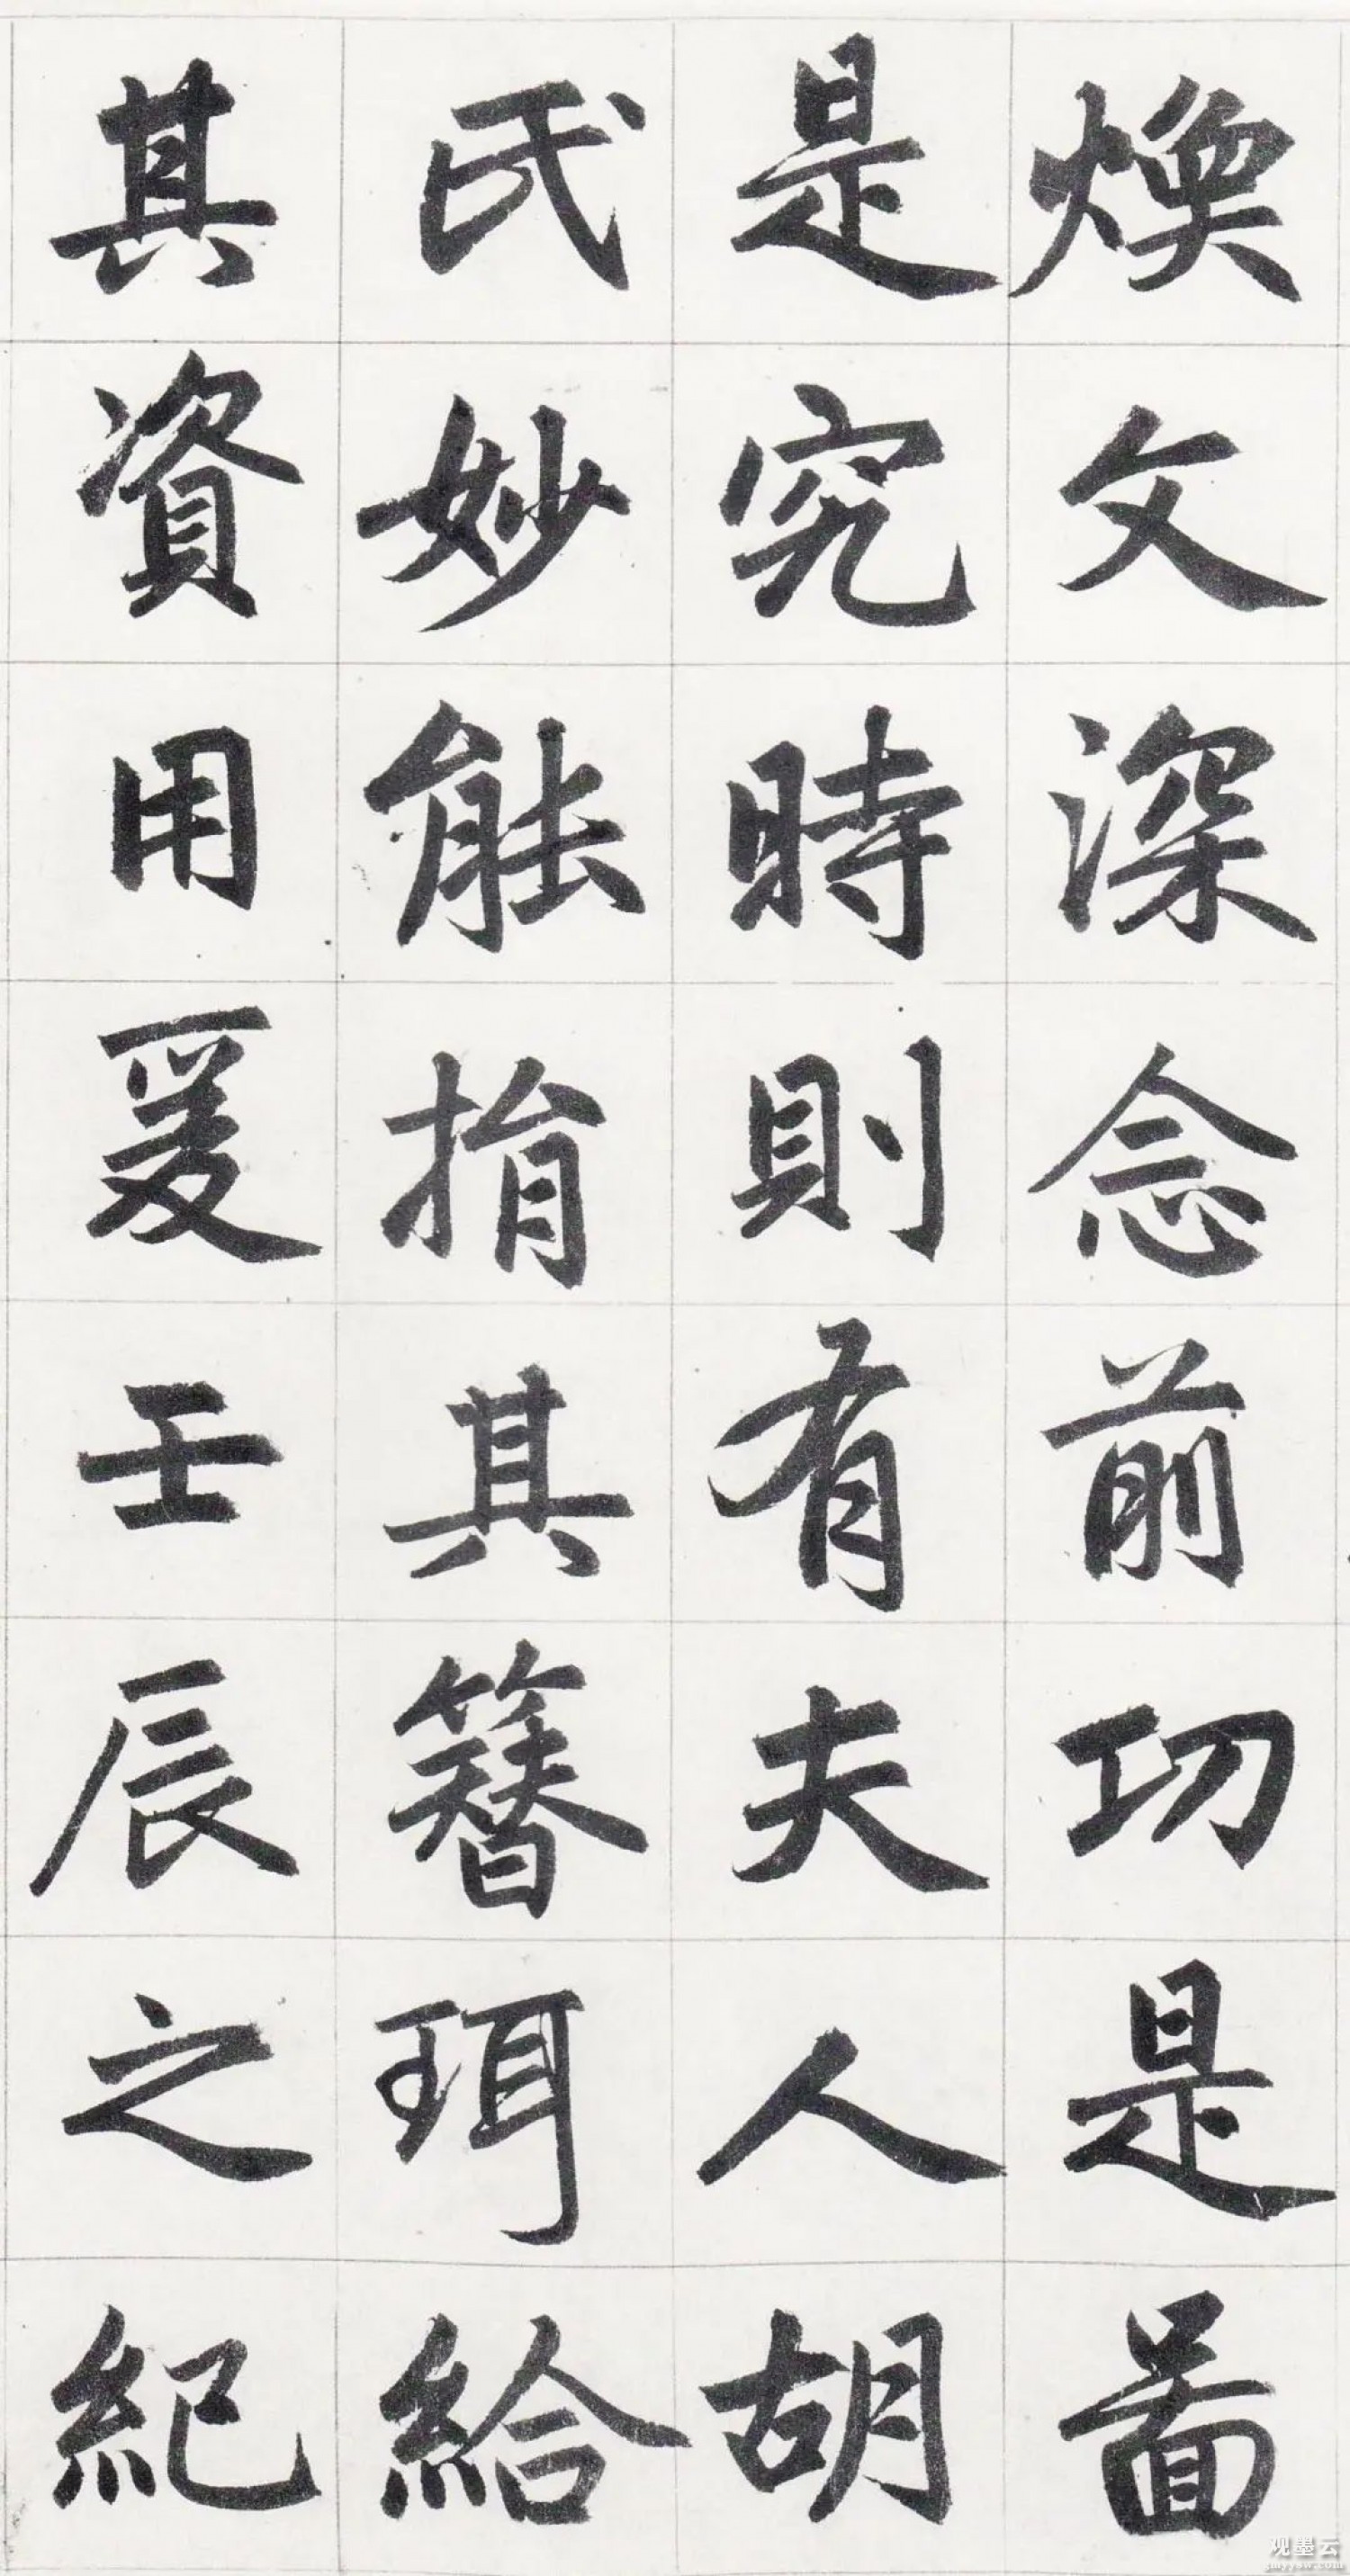 煥文深念前功是啚
是究時則有夫人胡
氏妙能捐其簪珥給
其資用爰壬辰之紀
观墨云